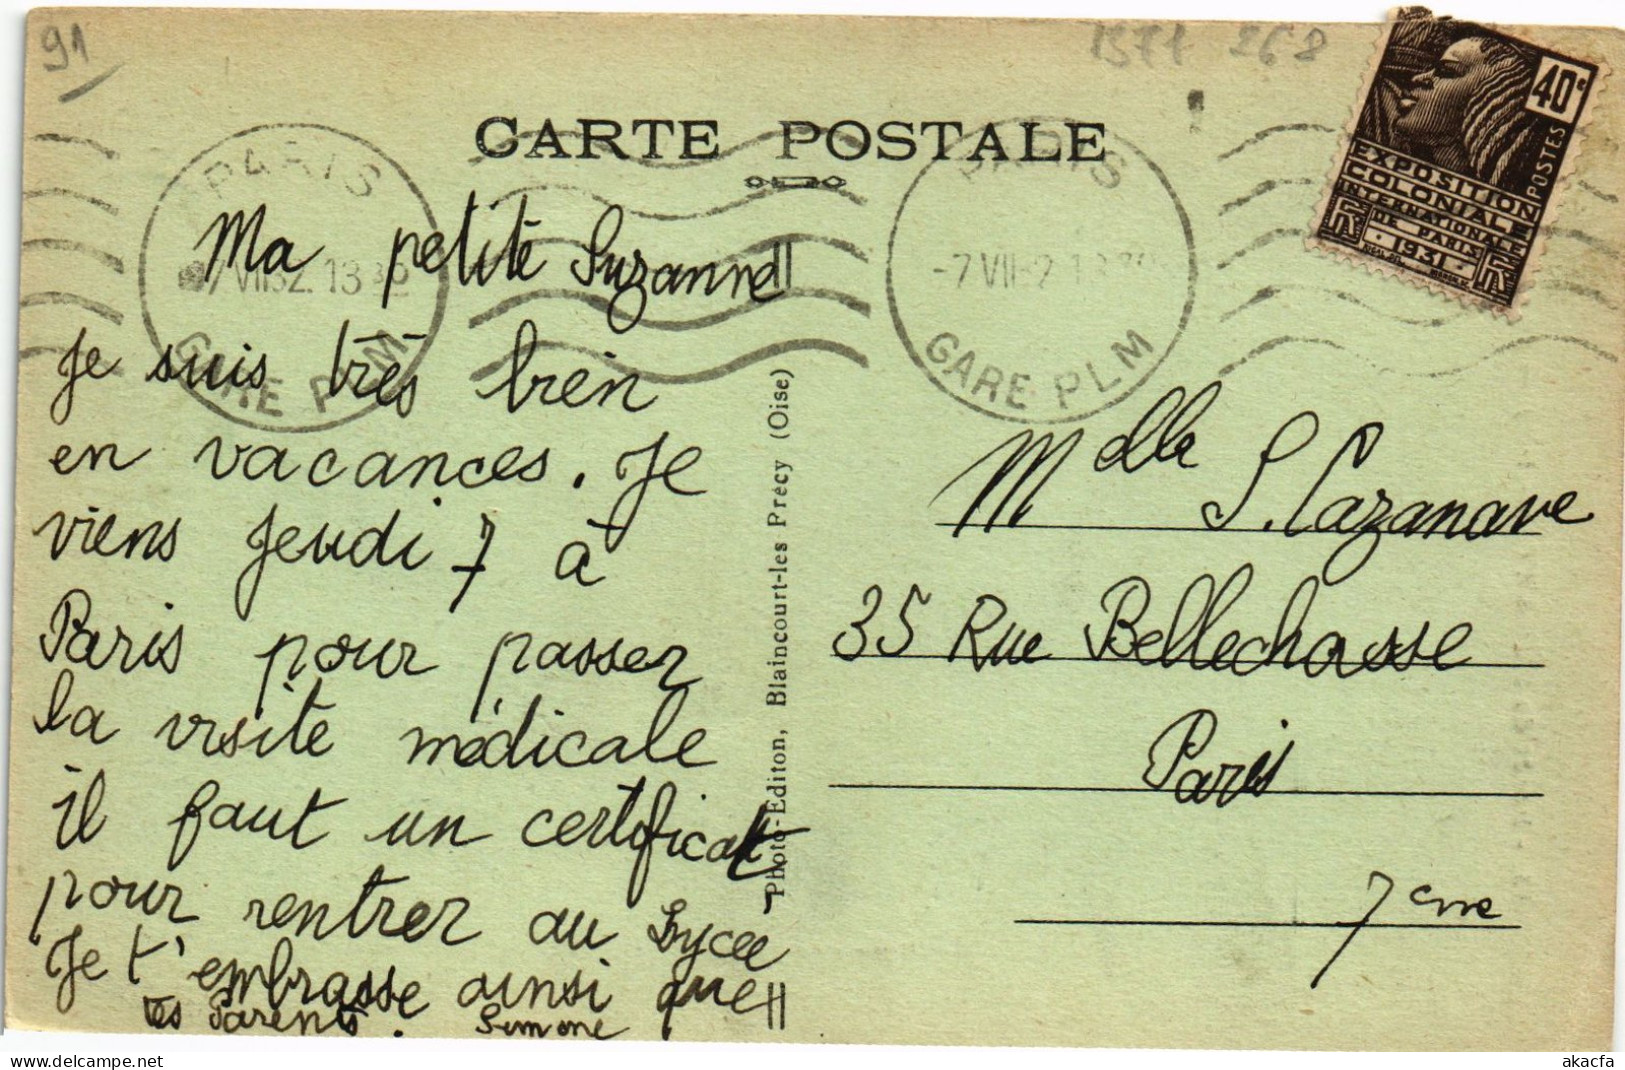 91
1371 268
40c
POSTES
EXPOSITION
COLONIALE
INTERNATIONALE
DE PARIS
1931
CARTE POSTALE
PARIS
7 VII 32 13 30
GARE PLM
PARIS
-7 VII 32 13 30
GARE PLM
Ma petite Suzanne
Je suis très bien
en vacances. Je
viens Jeudi 7 à
Paris pour passer
la visite médicale
il faut un certificat
pour rentrer au Lycée
Je t'embrasse ainsi que
tes Parents. Simone
Photo-Editon, Blaincourt-les Précy (Oise)
Mdlle S. Cazanave
35 Rue Bellechasse
Paris
7eme
https://www.delcampe.net
akacfa